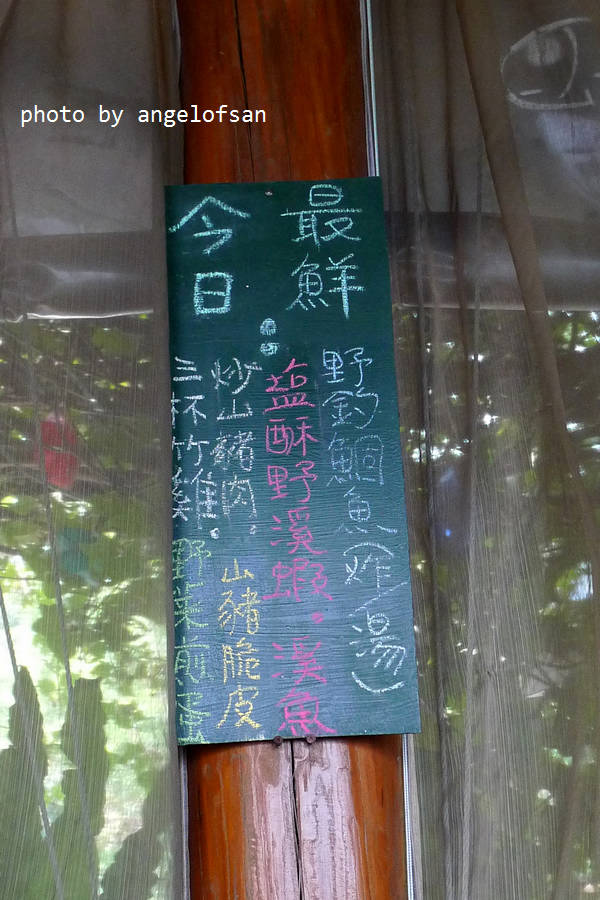 photo by angelofsan
今日
最鮮
野釣鯛魚(炸、湯)
塩酥野溪蝦。溪魚
炒山豬肉。山豬脆皮
三杯竹雞。野菜煎蛋